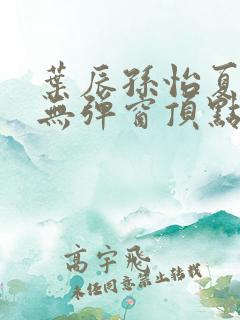 葉辰孫怡夏
無彈窗頂點
高宇飛
未經同意禁止轉載